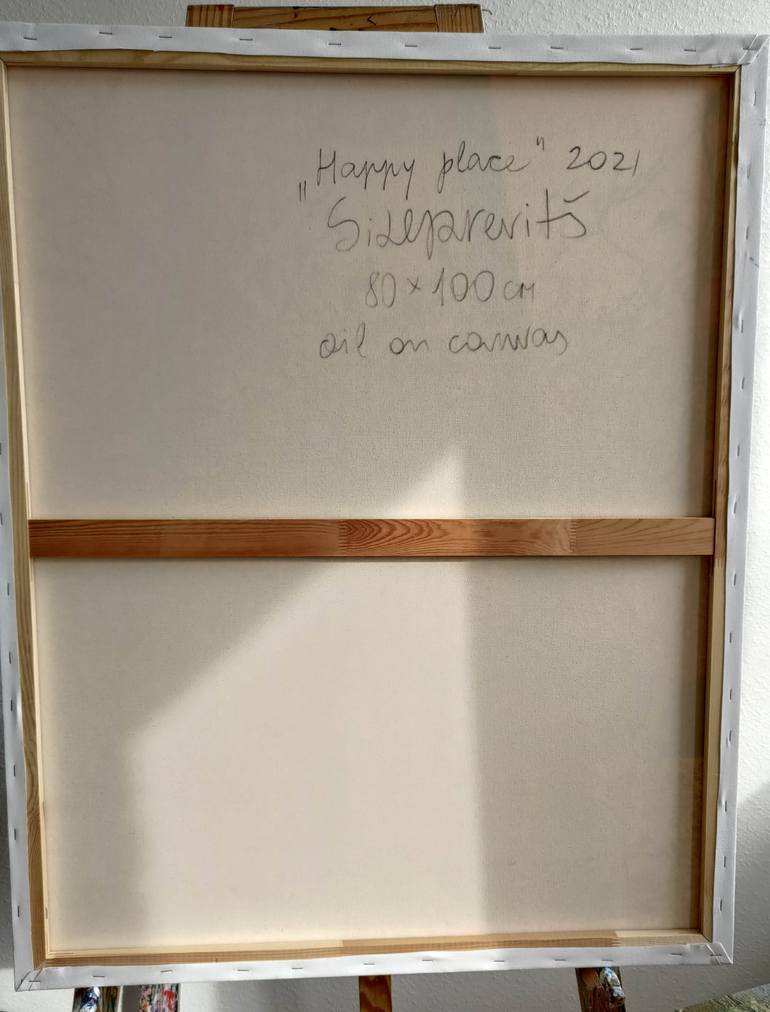 „Happy place" 2021
Sizeprevitš
80 × 100 см
oil on canvas